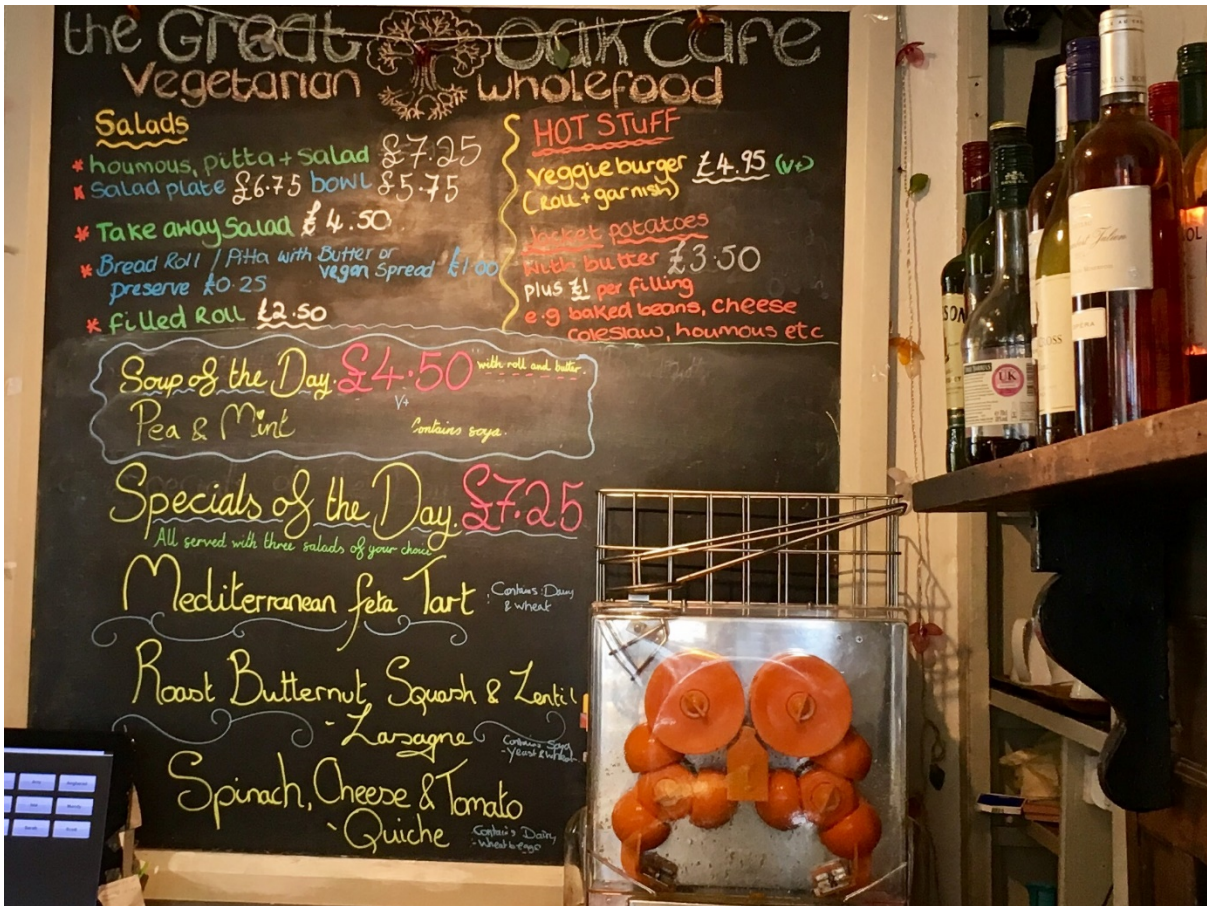 the Great Oak Cafe
Vegetarian wholefood
Salads
* houmous, pitta + salad £7.25
* Salad plate £6.75 bowl £5.75
* Take away Salad £4.50
* Bread Roll / Pitta with Butter or
vegan Spread £1.00
preserve £0.25
* filled Roll £2.50
HOT STUFF
veggie burger £4.95 (V+)
(Roll + garnish)
Jacket potatoes
with butter £3.50
plus £1 per filling
e.g baked beans, cheese
coleslaw, houmous etc
Soup of the Day. £4.50 with roll and butter.
V+
Pea & Mint Contains soya.
Specials of the Day. £7.25
All served with three salads of your choice
Mediterranean feta Tart
Contains: Dairy
& wheat
Roast Butternut Squash & Lentil
- Lasagne
Contains Soya
- Yeast & wheat
Spinach, Cheese & Tomato
- Quiche
Contains Dairy
- Wheat & eggs
UK